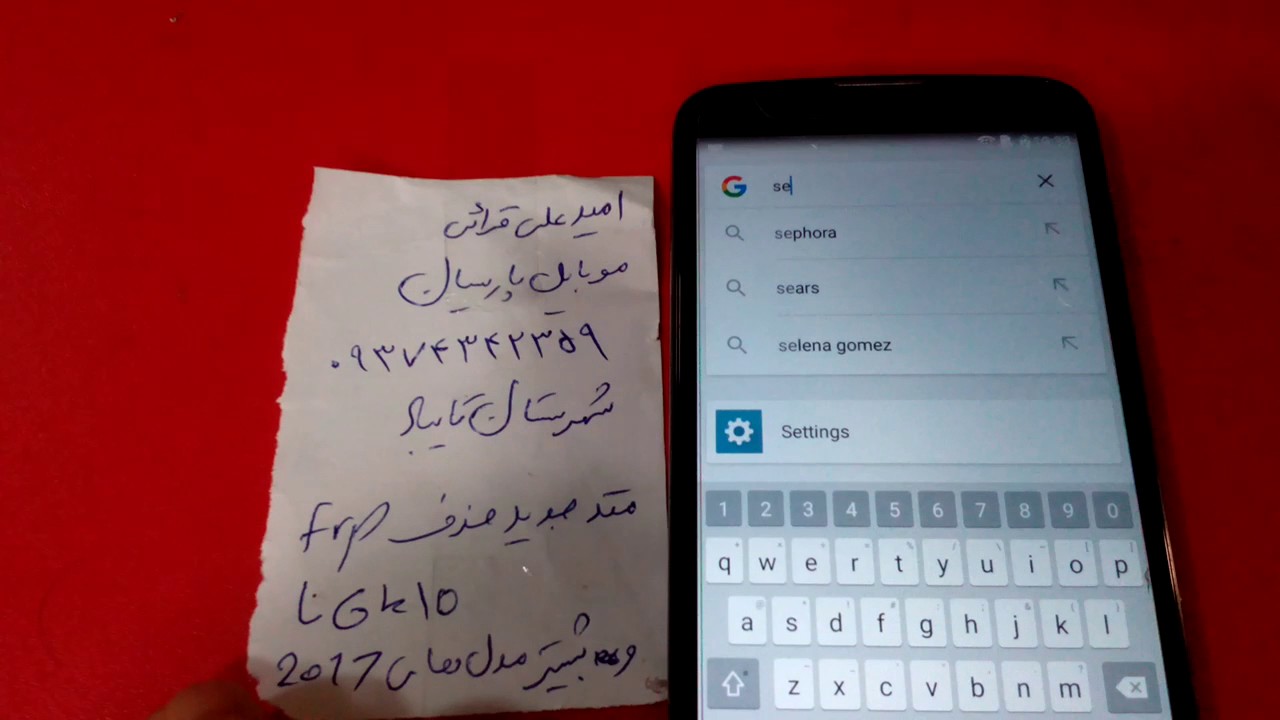 امید علی قرائی
موبایل پارسیان
۰۹۳۷۴۳۴۲۳۵۹
شهرستان تایباد
متد جدید حذف frp
تا k10
و بیشتر مدل های 2017
se
sephora
sears
selena gomez
Settings
1 2 3 4 5 6 7 8 9 0
q w e r t y u i o p
a s d f g h j k l
z x c v b n m